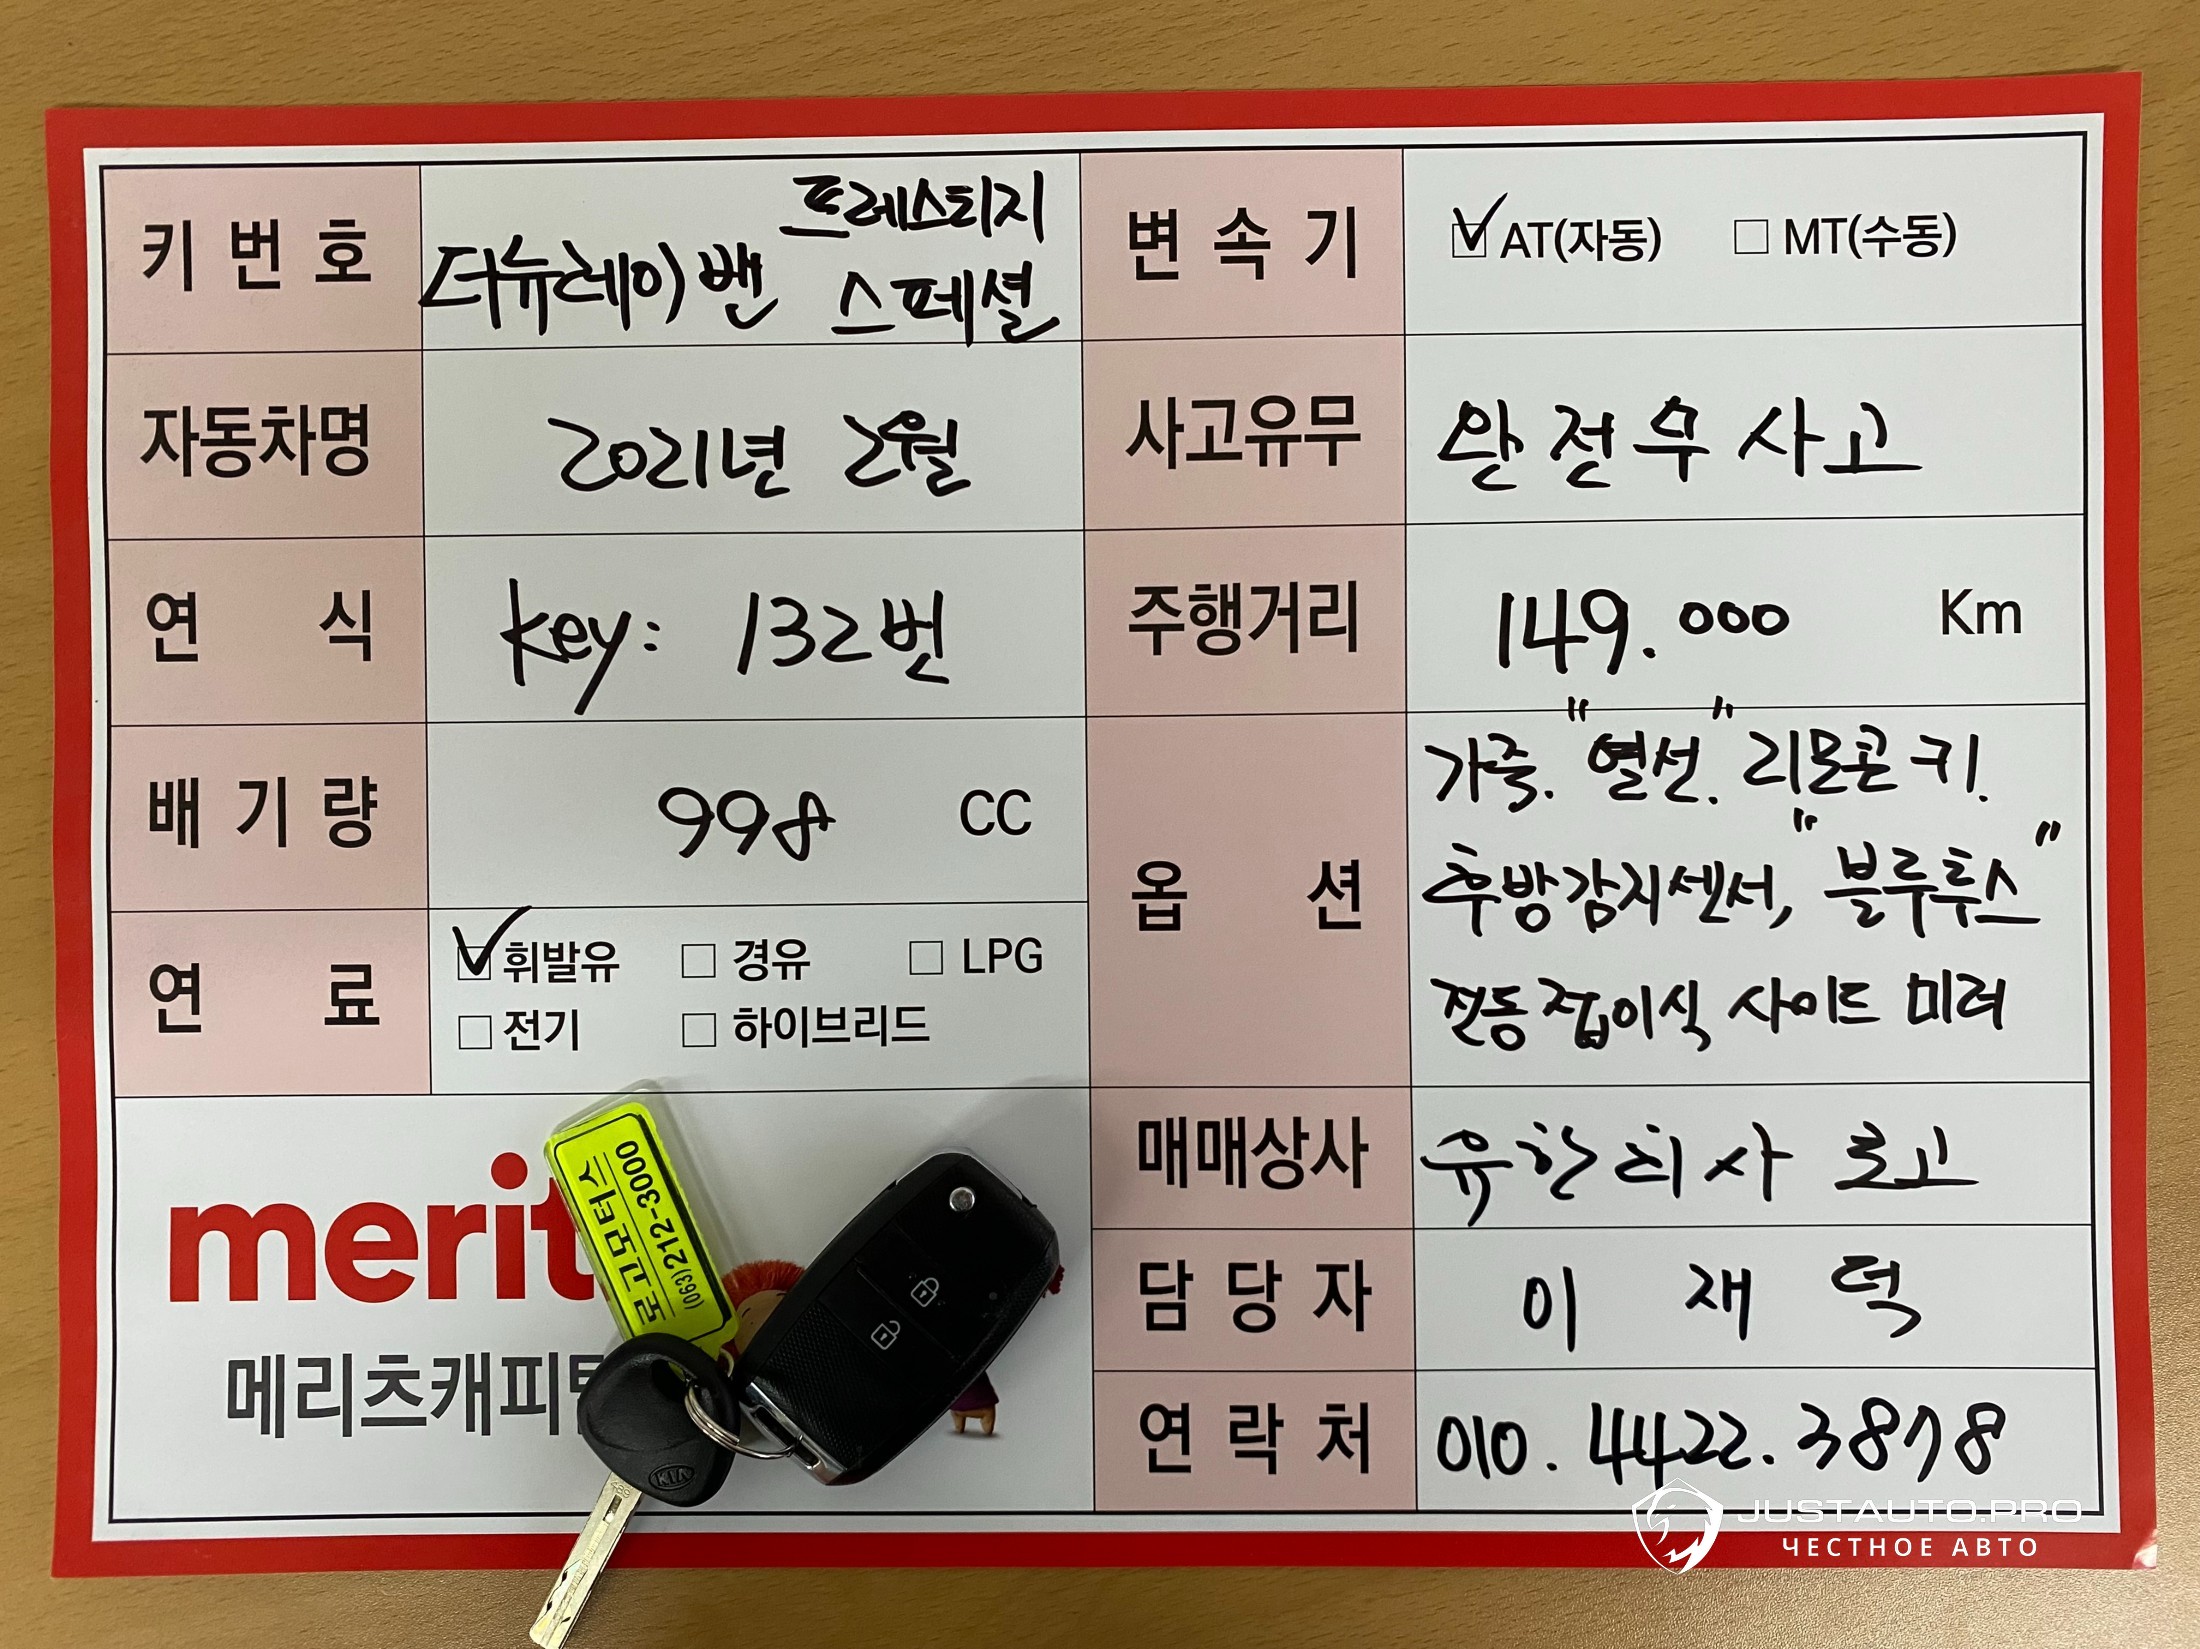 키 번 호 더뉴레이 밴 프레스티지 스페셜
자동차명 2021년 2월
연 식 key: 132번
배 기 량 998 CC
연 료 ☑휘발유 □ 경유 □ LPG
□ 전기 □ 하이브리드
변 속 기 ☑AT(자동) □ MT(수동)
사고유무 완전무사고
주행거리 149.000 Km
옵 션 가죽. "열선". 리모콘 키.
후방감지센서, "블루투스"
전동접이식 사이드 미러
매매상사 유한회사 로고
담 당 자 이 재 덕
연 락 처 010.4422.3878
merit
메리츠캐피탈
로고모터스
(063)212-3000
KIA
JUSTAUTO.PRO
ЧЕСТНОЕ АВТО